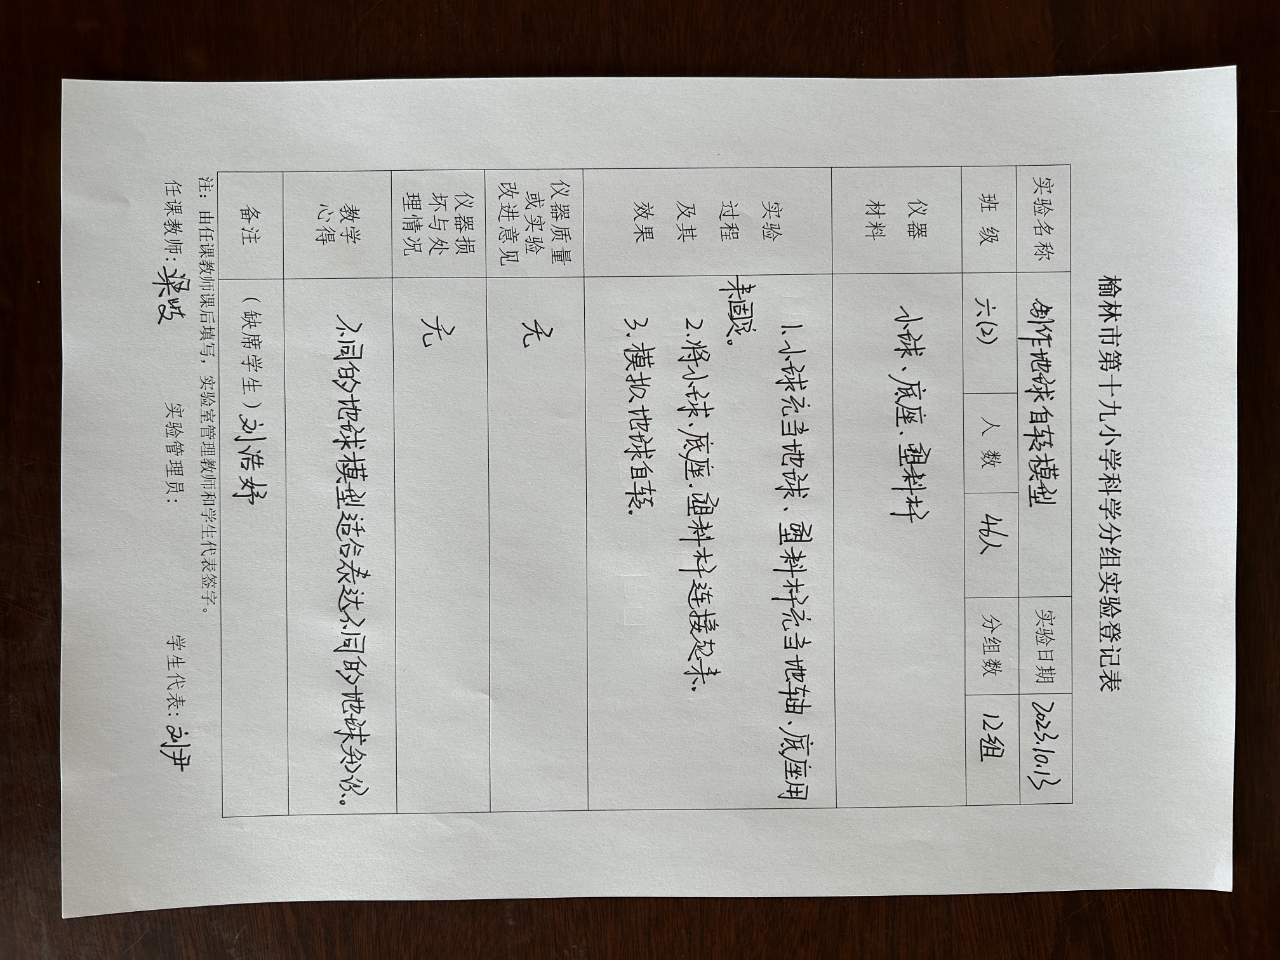 榆林市第十九小学科学分组实验登记表
实验名称 制作地球自转模型 实验日期 2023.10.13
班级 六(2) 人数 46人 分组数 12组
仪器
材料
小球、底座、塑料杆
实验
过程
及其
效果
1.小球充当地球、塑料杆充当地轴、底座用
来固定。
2.将小球、底座、塑料杆连接起来.
3.模拟地球自转.
仪器质量
或实验
改进意见
无
仪器损
坏与处
理情况
无
教学
心得
不同的地球模型适合表达不同的地球知识。
备注 (缺席学生) 刘浩妤
注：由任课教师课后填写，实验室管理教师和学生代表签字。
任课教师: 梁 实验管理员: 学生代表: 刘尹